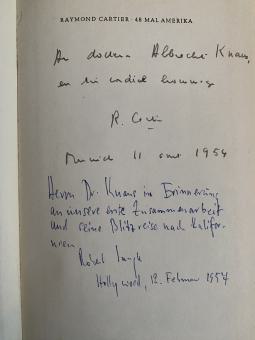 RAYMOND CARTIER · 48 MAL AMERIKA
Au docteur Albrecht Knaus,
en
R. Cartier
Munich 11 1954
Herrn Dr. Knaus in Erinnerung
an unsere erste Zusammenarbeit
und seine Blitzreise nach Kalifor-
nien.
Robert Jungk
Hollywood, 12. Februar 1954